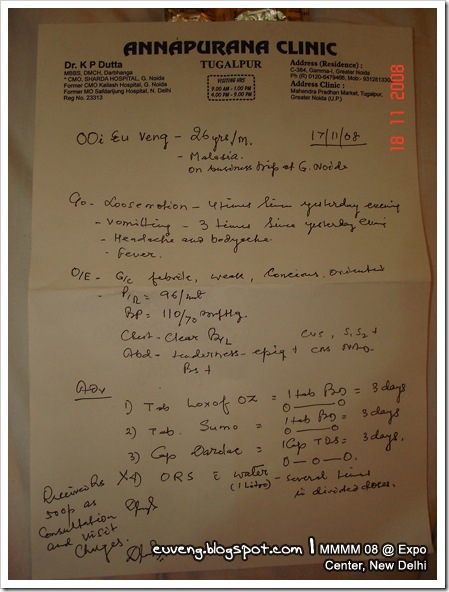 ANNAPURANA CLINIC
TUGALPUR
Dr. K P Dutta
MBBS, DMCH, Darbhanga
* CMO, SHARDA HOSPITAL, G. Noida
Former CMO Kailash Hospital, G. Noida
Former MO Safdarjung Hospital, N. Delhi
Reg No. 23313
VISITING HRS
9.00 AM - 1.00 PM
4.00 PM - 9.00 PM
Address (Residence) :
C-384, Gamma-I, Greater Noida
Ph (R) 0120-6479466, Mob.-
Address Clinic :
Mahendra Pradhan Market, Tugalpur,
Greater Noida (U.P.)
18 11 2008
OOi Eu Veng - 26 yrs/M.
17/11/08
- Malasia.
on business trip at G. Noida
C/o - Loosemotion - 4 times Since yesterday evening
- Vomitting - 3 times Since yesterday
- Headache and bodyache
- Fever.
O/E - G/c febrile, weak, Concious, oriented
- P/R = 96/mt
BP = 110/70 mmHg.
Chest - Clear B/L
CVS, S1S2 +
Abd - tenderness - epig +
CNS NAD.
BS +
Adv
1) Tab Loxof OZ = 1 tab BD = 3 days
0 — 0
2) Tab. Sumo = 1 tab BD = 3 days
0 — 0
3) Cap Dardac = 1 Cap TDS = 3 days.
0 — 0 — 0.
4) ORS c water - several times
(1 Litre)
in divided doses.
Received Rs
500/- as
Consultation
and visit
Charges.
euveng.blogspot.com | MMMM 08 @ Expo
Center, New Delhi